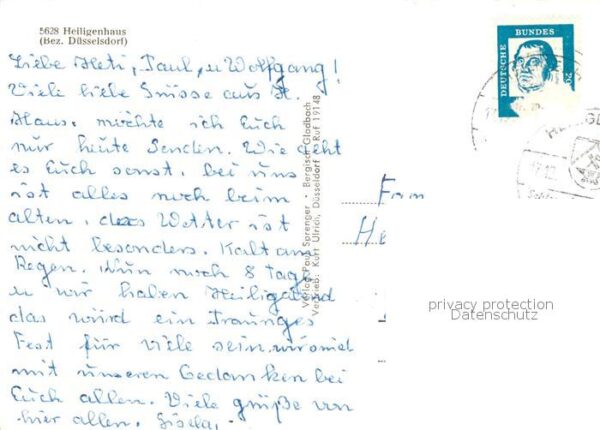 5628 Heiligenhaus
(Bez. Düsseldorf)
Liebe Heti, Paul, u Wolfgang!
Viele liebe Grüsse aus H.
Haus. möchte ich Euch
nur heute Senden. Wie geht
es Euch sonst. bei uns
ist alles noch beim
alten. das Wetter ist
nicht besonders. Kalt an
Regen. Nun noch 8 Tage
u wir haben Heiligabend
das wird ein Trauriges
Fest für viele sein. wir sind
mit unseren Gedanken bei
Euch allen. Viele grüße von
hier allen. Gisela.
Verlag Paus Sprenger · Bergisch Gladbach
Vertrieb: Kurt Ulrich, Düsseldorf · Ruf 19148
DEUTSCHE BUNDES
20
Fam
He
17.12.
privacy protection
Datenschutz